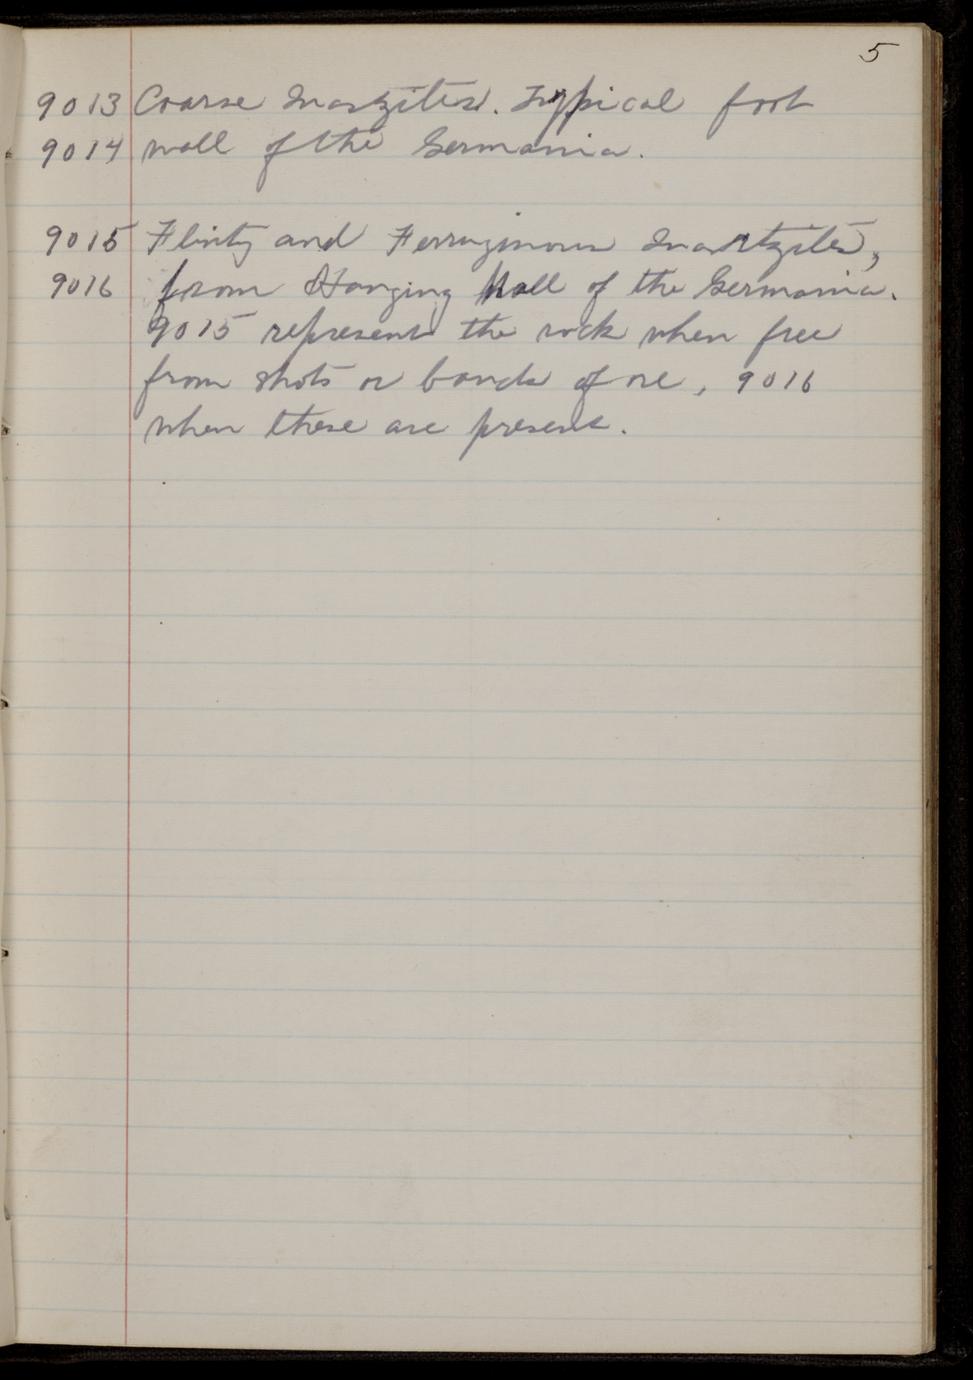 5
9013 Coarse Quartzites. Typical foot
9014 wall of the Germania.
9015 Flinty and Ferruginous Quartzites,
9016 from Hanging Wall of the Germania.
9015 represents the rock when free
from shots or bands of ore, 9016
when these are present.